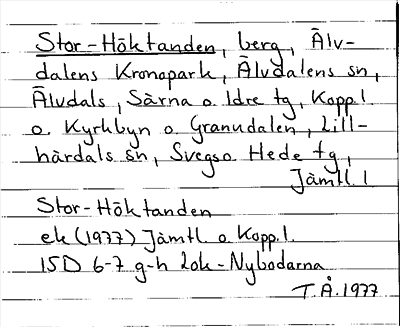 Stor-Höktanden, berg, Älv-
dalens Kronopark, Älvdalens sn,
Älvdals, Särna o. Idre tg, Kopp.l.
o. Kyrkbyn o. Granudalen, Lill-
härdals sn, Svegs o. Hede tg,
Jämtl. l
Stor-Höktanden
ek (1977) Jämtl. o. Kopp.l.
15D 6-7 g-h lok-Nybodarna
T.Å. 1977